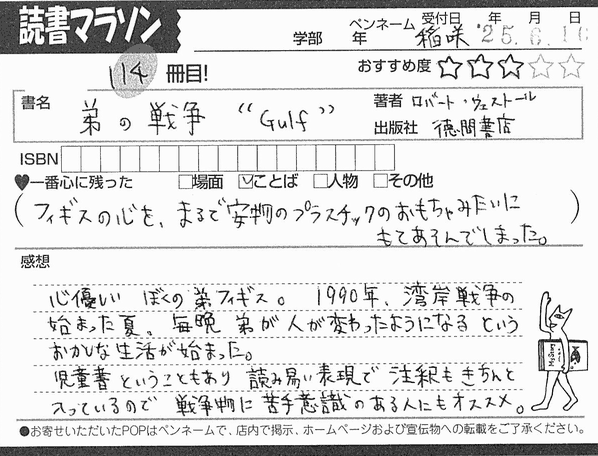 読書マラソン
学部 年 ペンネーム 稲咲 受付日 '25.6.10 年 月 日
114冊目! おすすめ度 ★★★☆☆
書名 弟の戦争 “Gulf” 著者 ロバート・ウェストール
出版社 徳間書店
ISBN
♥一番心に残った □場面 ☑ことば □人物 □その他
(フィギスの心を、まるで安物のプラスチックのおもちゃみたいに
もてあそんでしまった。)
感想
心優しい ぼくの弟フィギス。 1990年、湾岸戦争の
始まった夏。毎晩 弟が人が変わったようになるという
おかしな生活が始まった。
児童書ということもあり 読み易い表現で 注釈もきちんと
入っているので 戦争物に苦手意識のある人にもオススメ。
●お寄せいただいたPOPはペンネームで、店内で掲示、ホームページおよび宣伝物への転載をご了承ください。